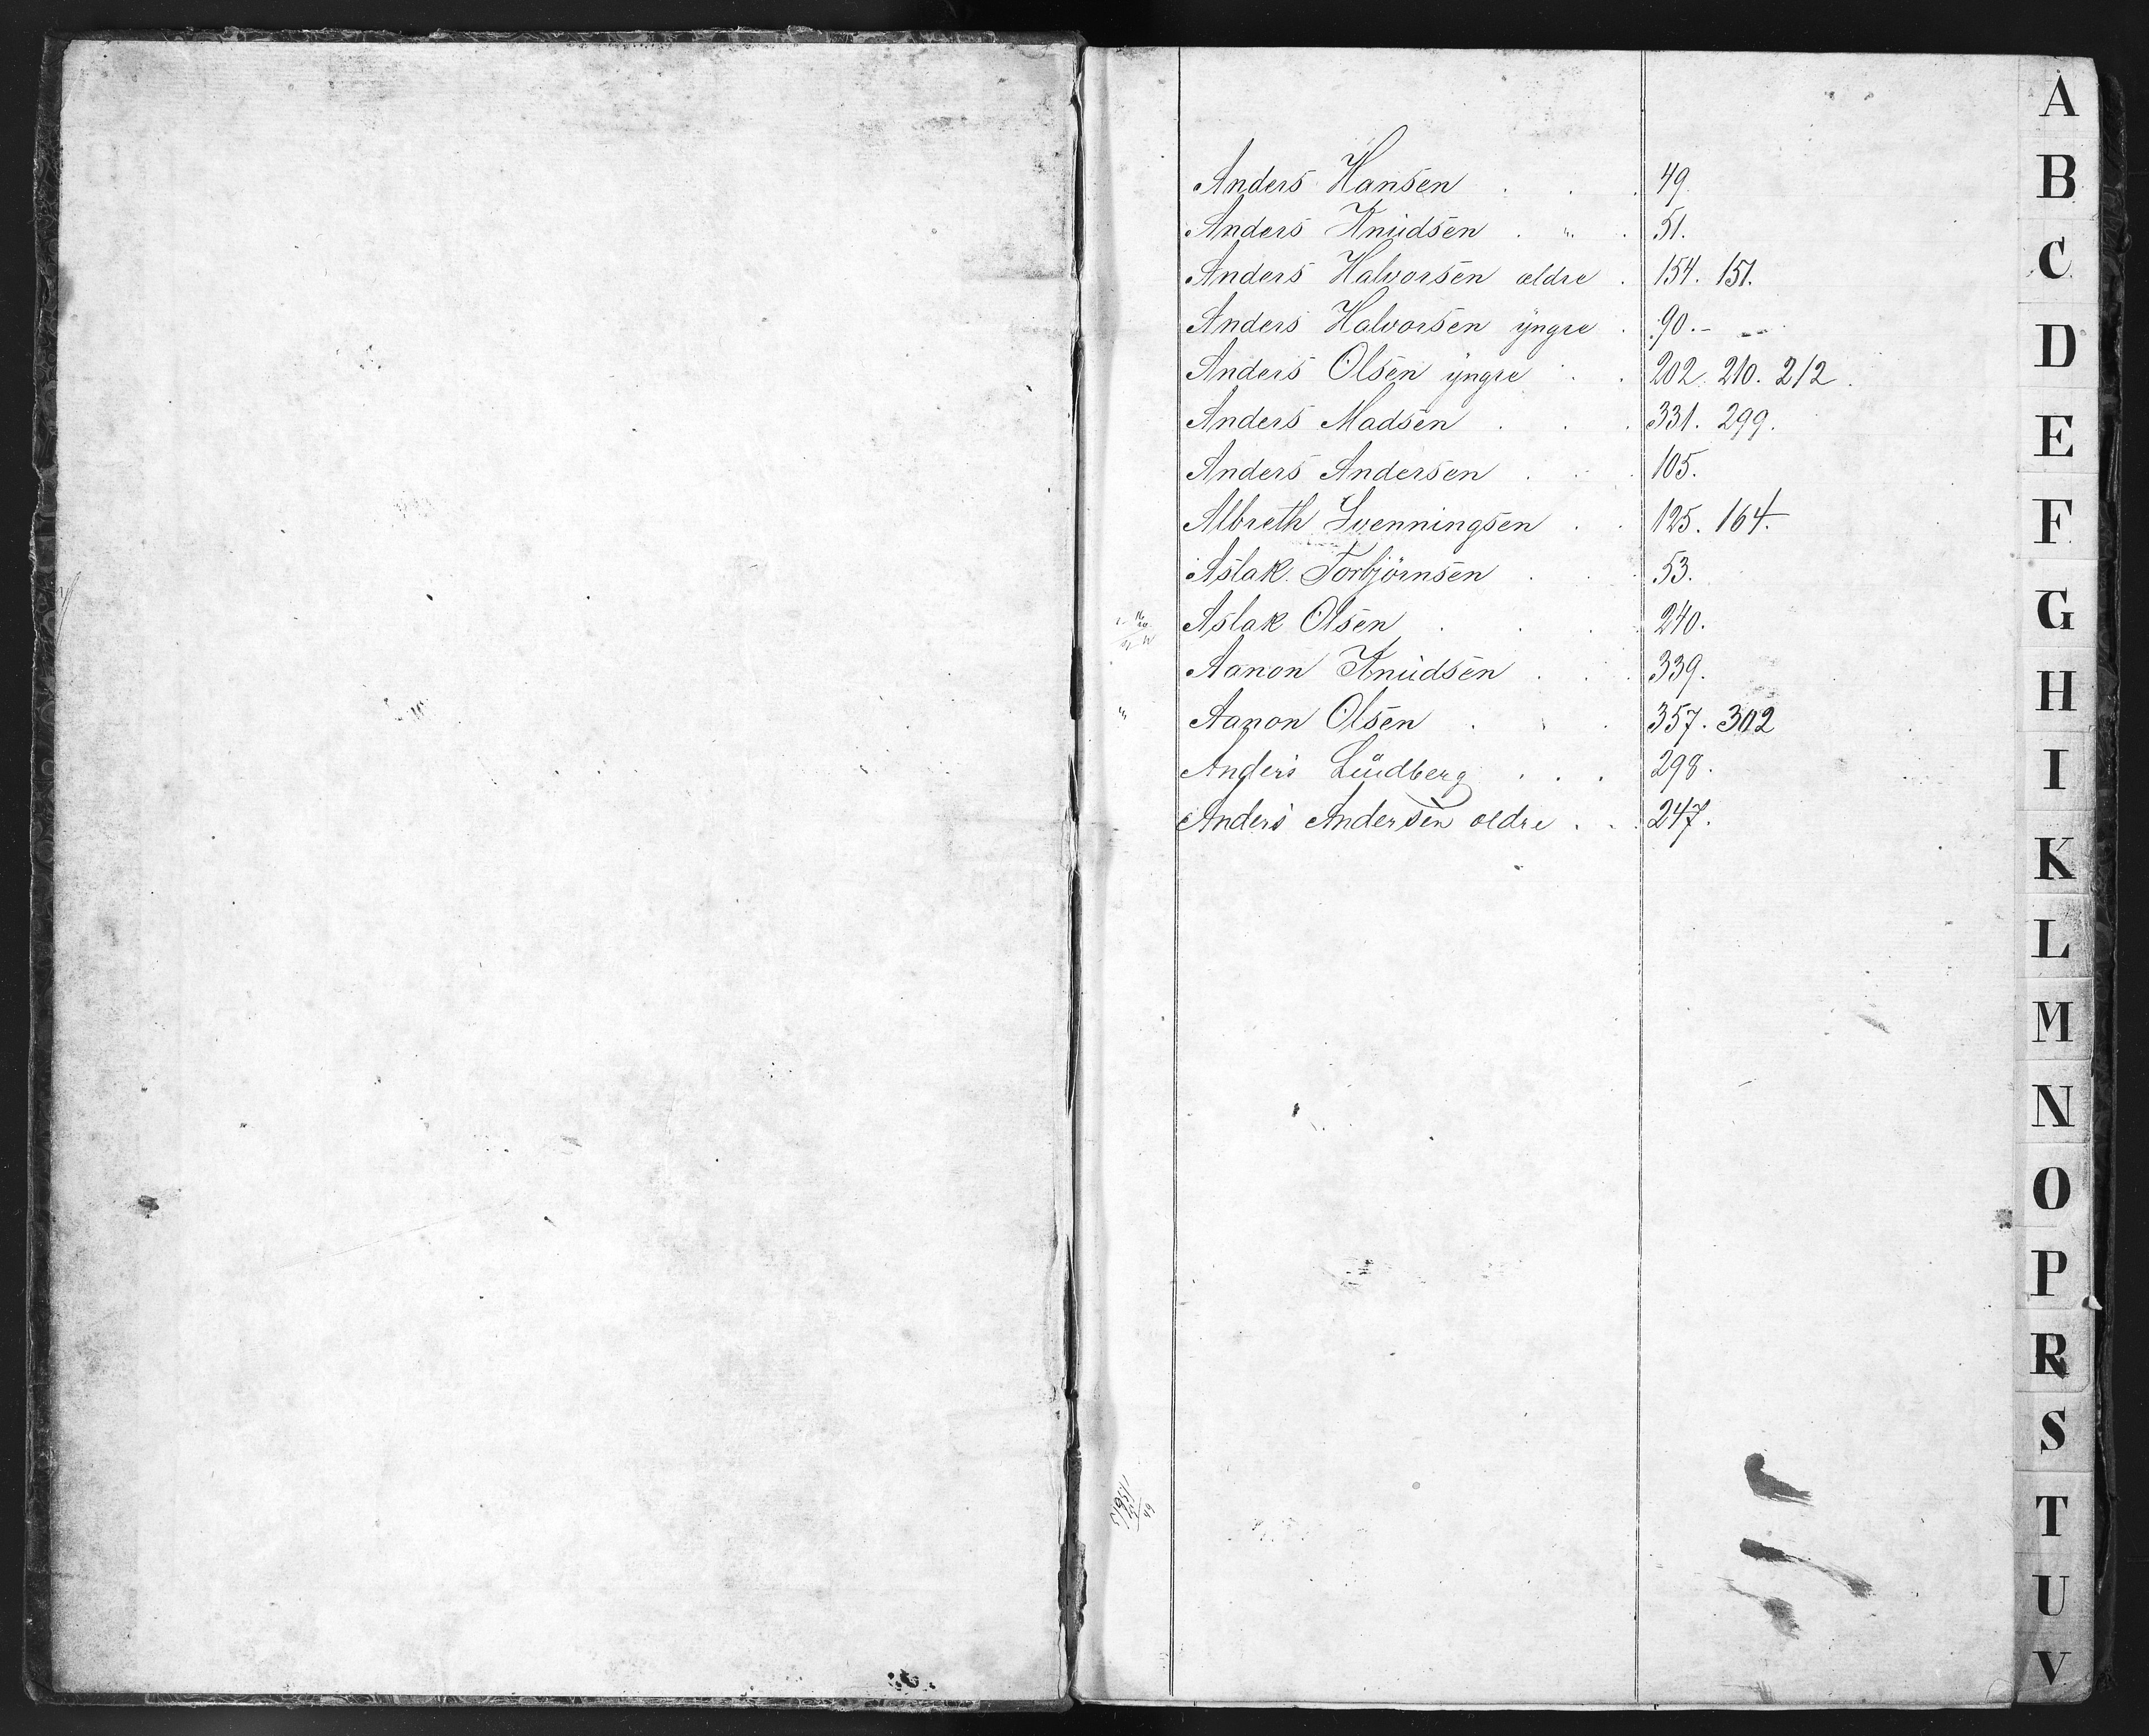 Anders Hansen . . . 49.
Anders Knudsen . " . 51.
Anders Halvorsen ældre . 154. 151.
Anders Halvorsen yngre . 90.-
Anders Olsen yngre . . 202. 210. 212.
Anders Madsen . . . 331. 299.
Anders Andersen . . . 105.
Albreth Svenningsen . . 125. 164.
Aslak Torbjörnsen . . . 53.
Aslak Olsen . . . 240.
Aanon Knudsen . . . 339.
Aanon Olsen . . . 357. 302
Anders Lindberg . . . 298.
Anders Andersen ældre . . . 247.
A
B
C
D
E
F
G
H
I
K
L
M
N
O
P
R
S
T
U
V